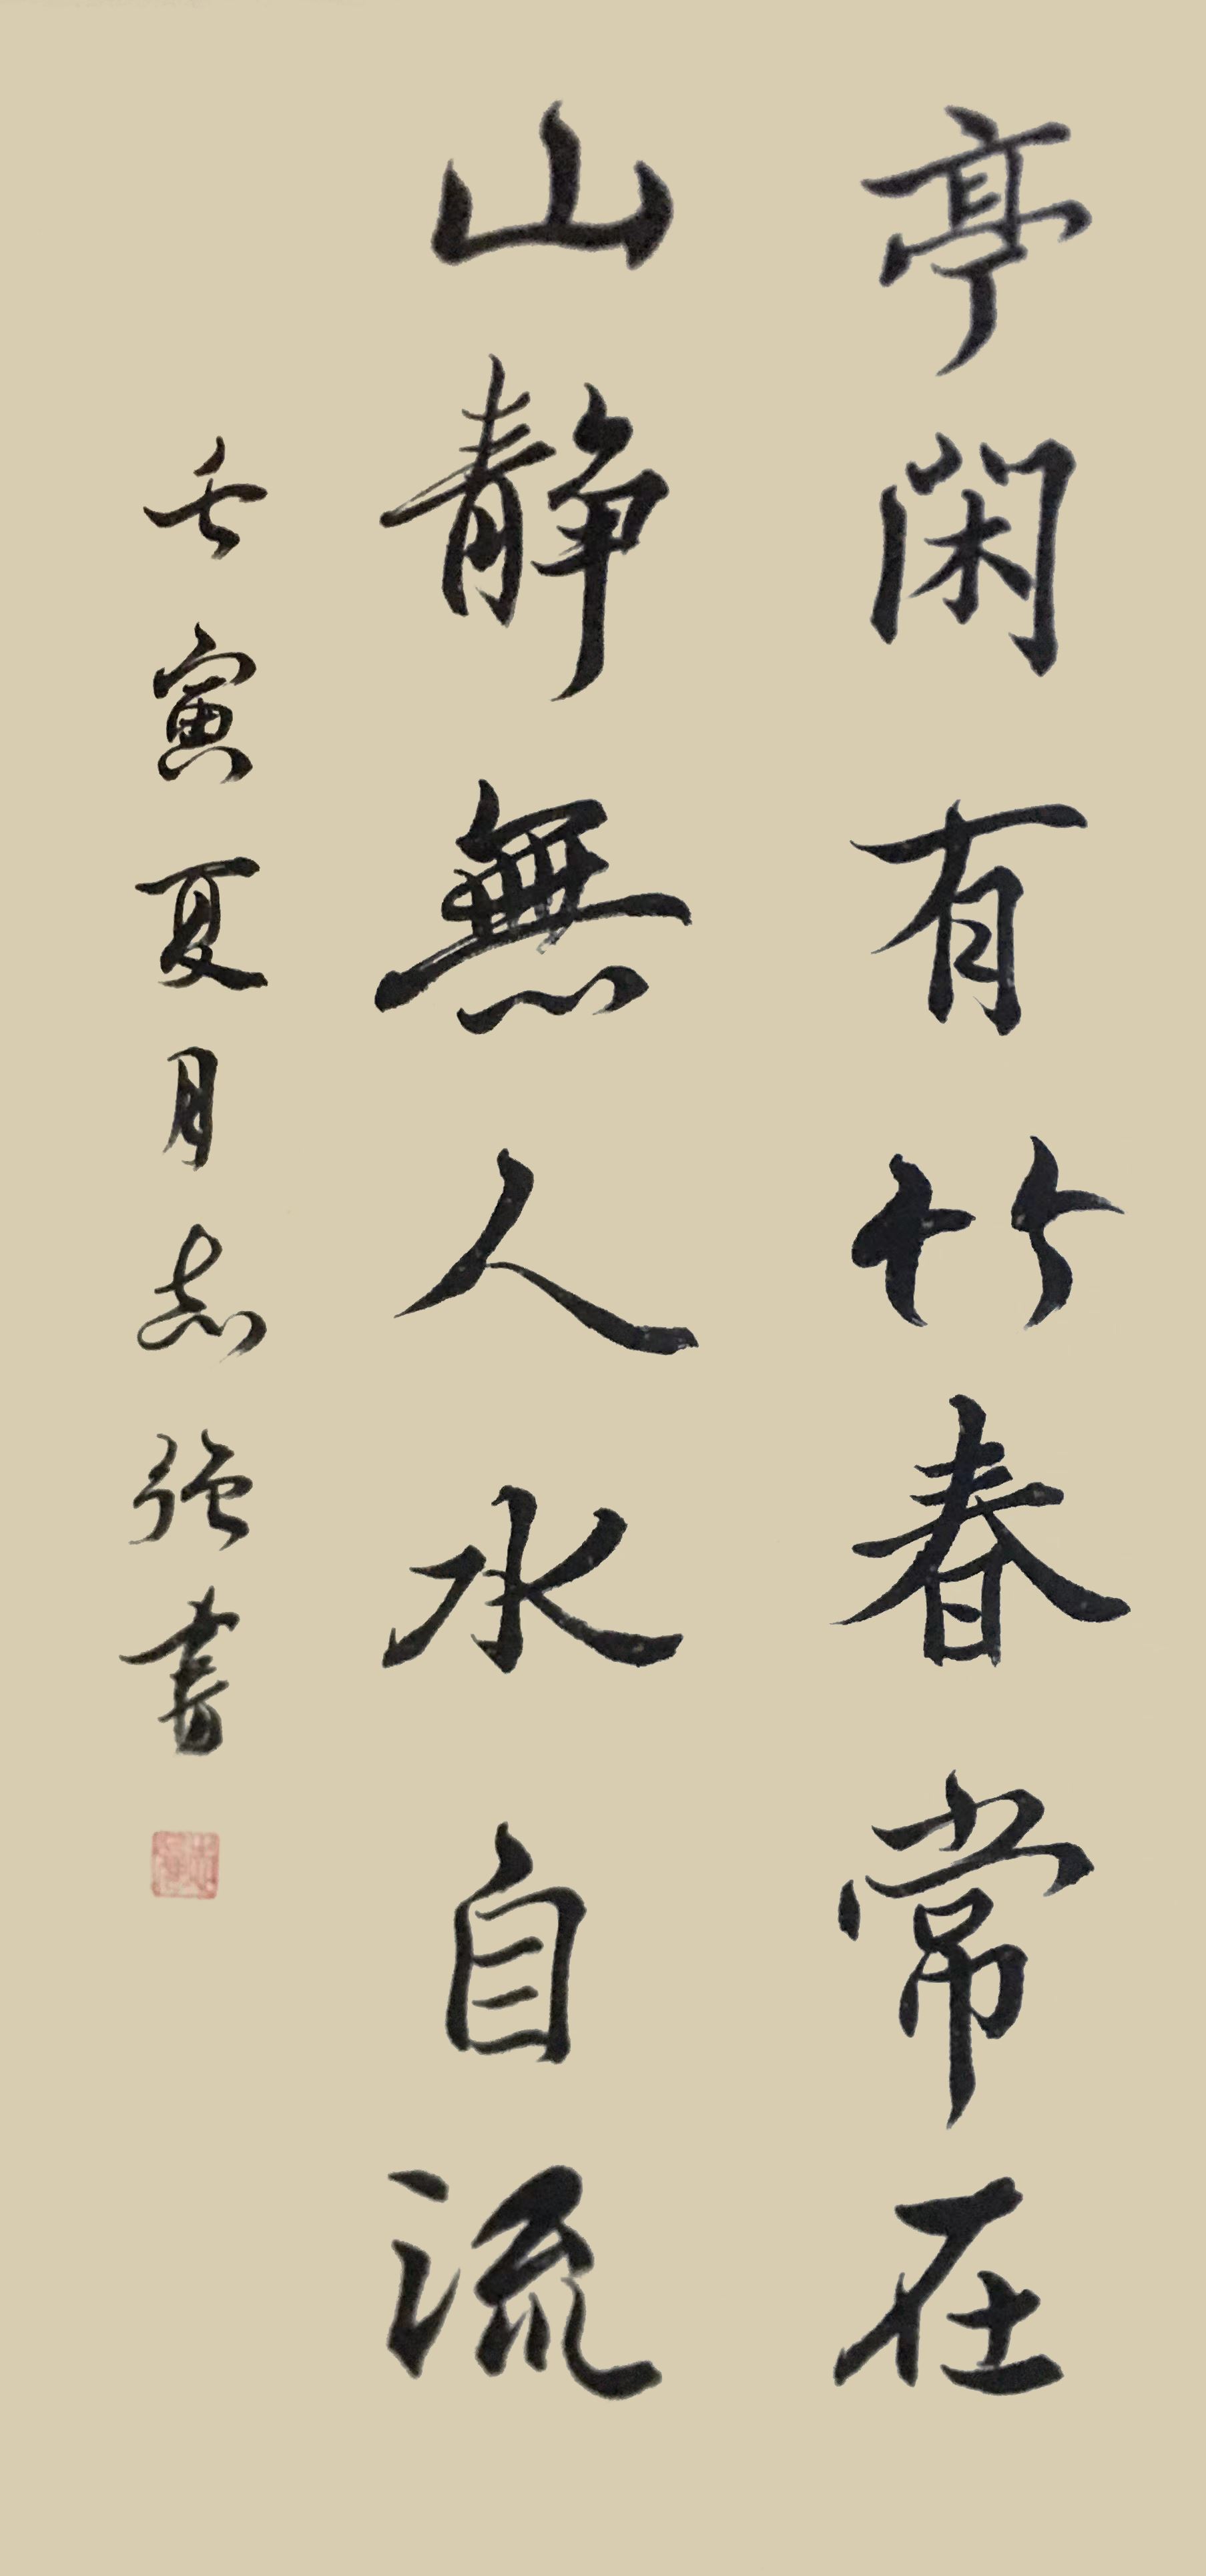 亭閑有竹春常在
山靜無人水自流
壬寅夏月志強書